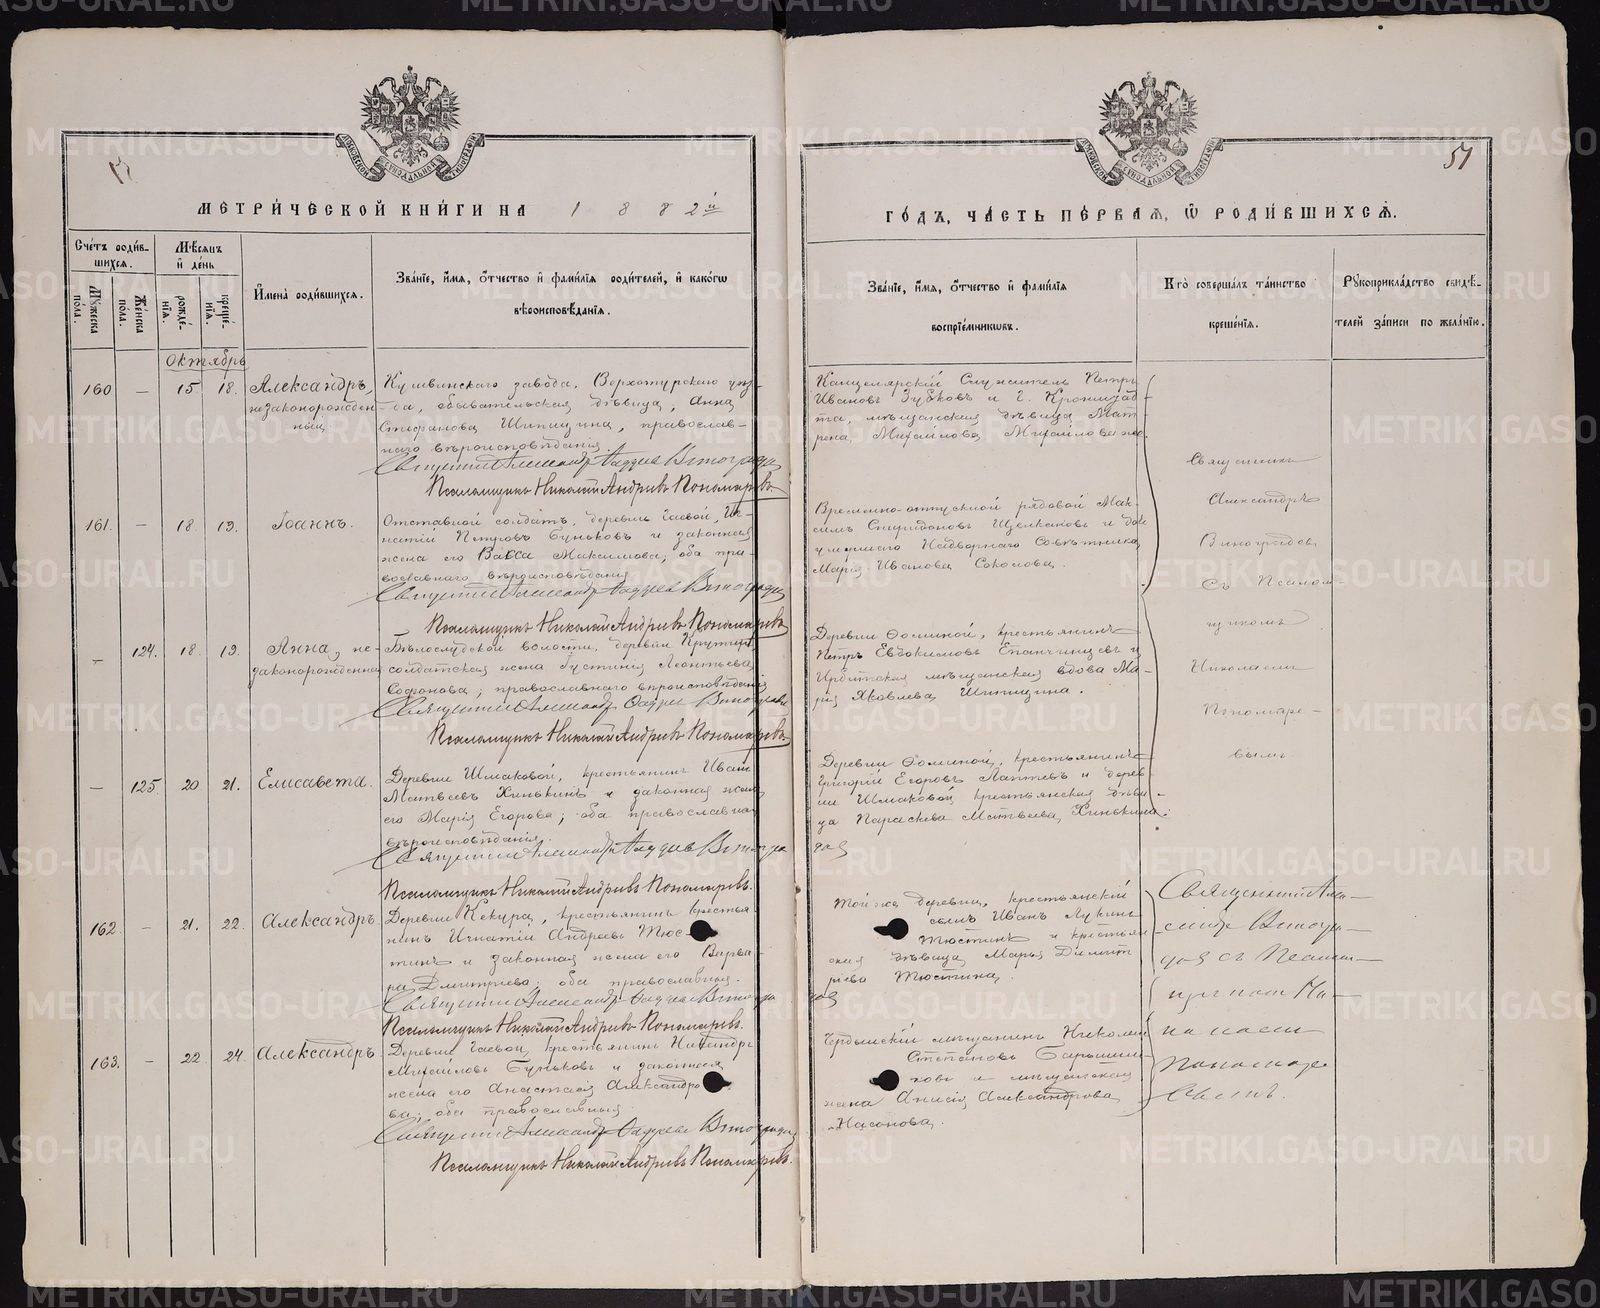 МЕТРИ́ЧЕСКОЙ КНИ́ГИ НА 1882й
Сче́тъ роди́вшихся.
Мѣсяцъ и́ де́нь
Мꙋ́жеска по́ла.
Же́нска по́ла.
рожде́нїя.
креще́нїя.
И́мена̀ роди́вшихся.
Зва́нїе, и́мя, ѻ́тчество и́ фами́лїя роди́телей, и́ како́гѡ вѣроисповѣ́данїя.
Октябрь
160 — 15. 18. Александръ, незаконорожденный
Кушвинскаго завода, Верхотурскаго уѣз-
да, обывательская дѣвица, Анна
Стефанова Шипицина, православ-
наго вѣроисповѣданія
Священникъ Александръ Виноградовъ
Псаломщикъ Николай Андреевъ Пономаревъ
161. — 18. 19. Іоаннъ.
Отставной солдатъ, деревни Гаевой, Иг-
натій Петровъ Буньковъ и законная
жена его Васса Максимова; оба пра-
вославнаго вѣроисповѣданія
Священникъ Александръ Виноградовъ
Псаломщикъ Николай Андреевъ Пономаревъ
— 124. 18. 19. Анна, незаконорожденная
Бѣлослудской волости, деревни
солдатская жена Іустинія Леонтьева
Софонова; православнаго вѣроисповѣданія
Священникъ Александръ Виноградовъ
Псаломщикъ Николай Андреевъ Пономаревъ
— 125. 20 21. Елисавета.
Деревни Шмаковой, крестьянинъ Иванъ
Матвѣевъ Хинькинъ и законная жена
его Марія Егорова; оба православнаго
вѣроисповѣданія.
Священникъ Александръ Виногра
Псаломщикъ Николай Андреевъ Пономаревъ.
162 — 21. 22. Александръ
Деревни Кекура, крестьянинъ крестья-
нинъ Игнатій Андреевъ Тюс-
тинъ и законная жена его Варва-
ра Дмитріева; оба православныя.
Священникъ Александръ Виногра
Псаломщикъ Николай Андреевъ Пономаревъ.
163. — 22. 24. Александръ.
Деревни Гаевой, крестьянинъ Никандръ
Михаиловъ Буньковъ и законная
жена его Анастасія Александро-
ва; оба православныя.
Священникъ Александръ Виноградовъ
Псаломщикъ Николай Андреевъ Пономаревъ.
51
ГО́ДЪ, ЧА́СТЬ ПЕ́РВАЯ, Ѽ РОДИ́ВШИХСѦ.
Зва́нїе, и́мя, ѻ́тчество и́ фами́лїя воспрїе́мниковъ.
Кто̀ соверша́лъ та́инство креще́нїя.
Рꙋкоприкла́дство свидѣ́телей за́писи по жела́нїю.
Канцелярскій Служитель Петръ
Ивановъ Зубковъ и г. Кронштад-
та, мѣщанская дѣвица Мат-
рена Михайлова Михайлова же.
Временно-отпускной рядовой Мак-
симъ Спиридоновъ Щелкановъ и дочь
умершаго Надворнаго Совѣтника,
Марія Иванова Соколова.
Деревни Ѳоминой, крестьянинъ
Петръ Евдокимовъ Епанчинцевъ и
Ирбитская мѣщанская вдова Ма-
рія Яковлева Шипицина.
Деревни Ѳоминой, крестьянинъ
Григорій Егоровъ Лаптевъ и дерев
ни Шмаковой крестьянская дѣви-
ца Параскева Матвѣева Хинькина.
довъ
Той же деревни, крестьянскій
сынъ Иванъ Лукинъ
Тюстинъ и крестьян-
ская дѣвица Марья Димит
ріева Тюстина.
довъ
Чердынскій мѣщанинъ Николай
Степановъ Барышни-
ковъ и мѣщанская
жена Анисія Александрова
Насонова.
Священникъ
Александръ
Виноградовъ
съ Псалом-
щикомъ
Николаемъ
Пономаре-
вымъ
Священникъ Але-
ксандръ Виногра-
довъ съ Псалом-
щикомъ Ни-
колаемъ
Пономаре-
вымъ.